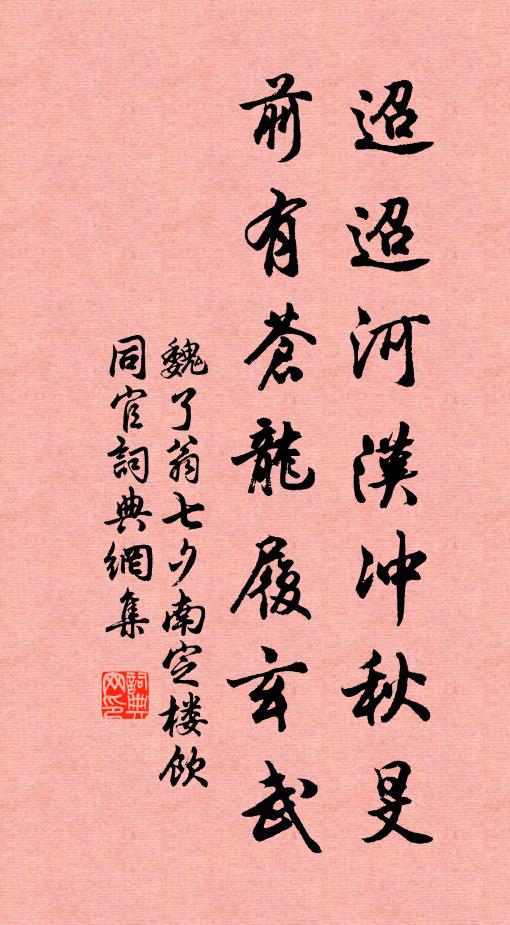 迢迢河漢冲秋旻
前有蒼龍履玄武
魏了翁七夕南定楼飲
同官詞典網集
詞典網印